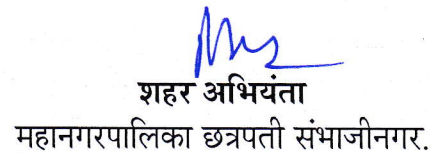 शहर अभियंता
महानगरपालिका छत्रपती संभाजीनगर.